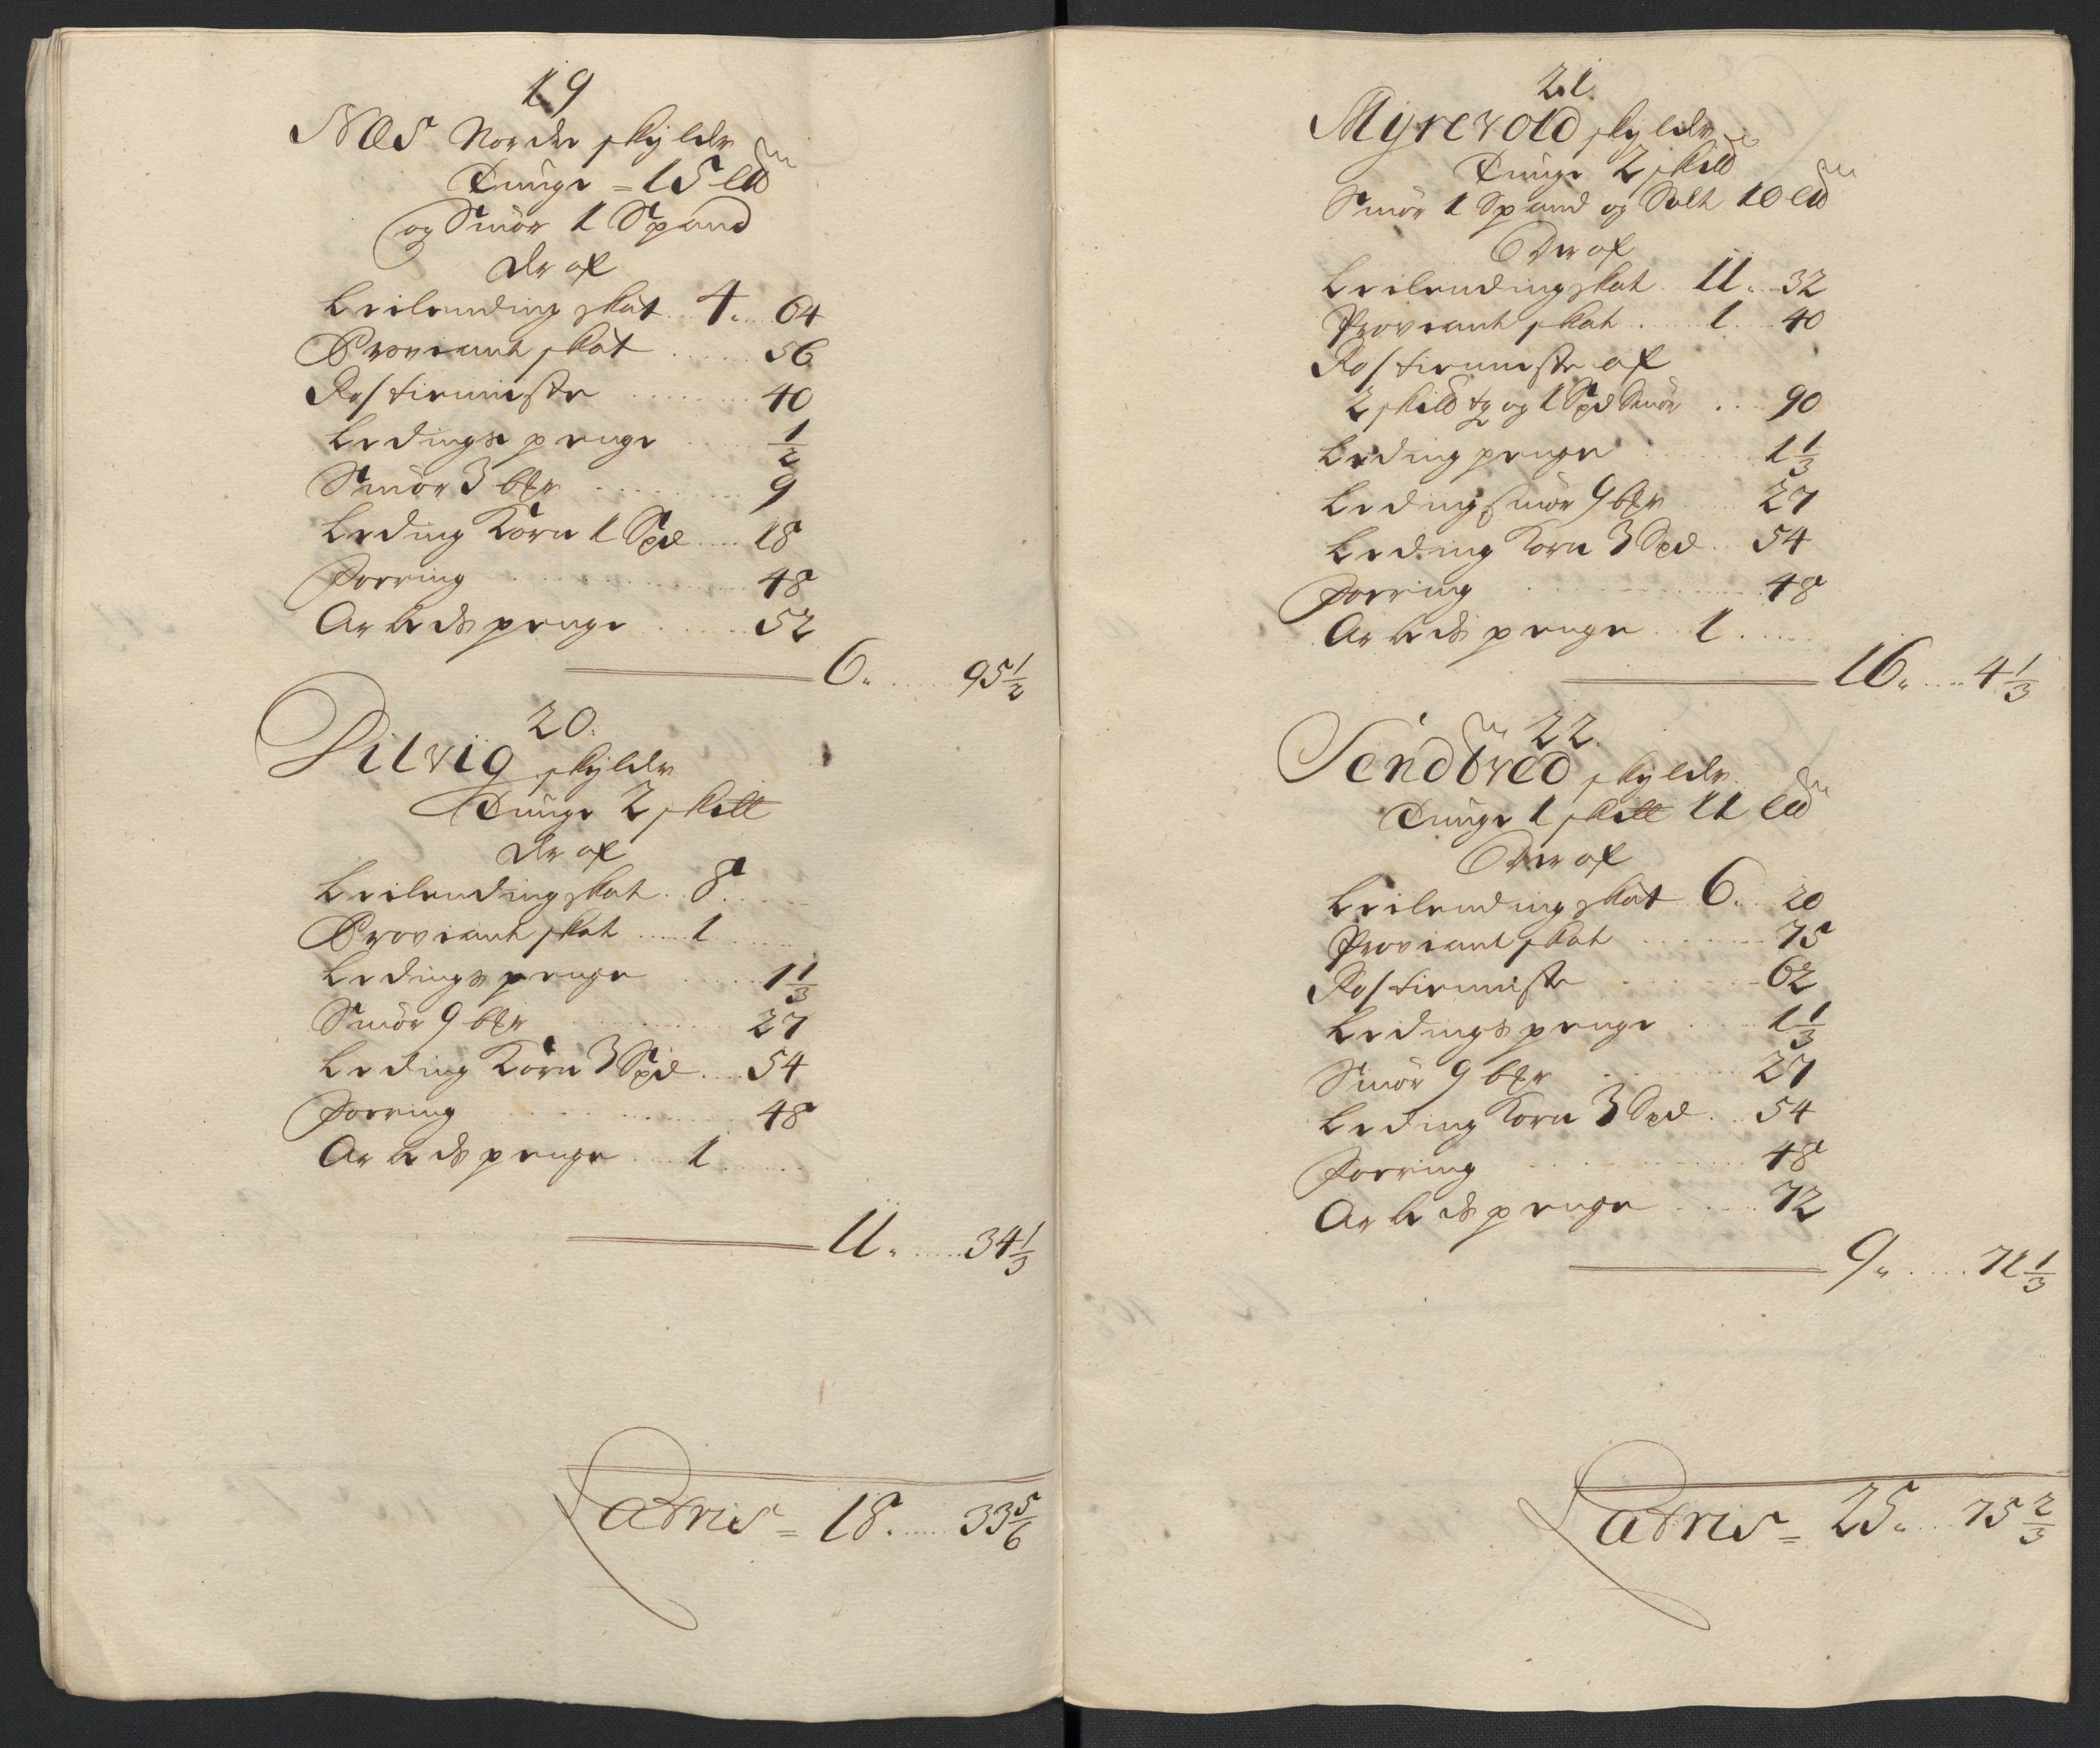 19
Næs Nordre skylder
Tunge = 15 ℔
og Smör 1 Spand
der af
Leilending skat . . 4 . . . 64
Proviant skat . . . . . 56
Rostienniste . . . . . . . 40
Ledings penge . . . . 1/2
Smör 3 bpr . . . . . . . . 9
Leding Korn 1 Spd . . . 18
Foering . . . . . . . . 48
Arbeds penge . . . . . 52
6 . . . . . 95 1/2
20.
Silvig skylder
Tunge 2 skill
der af
Leilending skat . . 8 . . . .
Proviant skat . . . . 1 . . . .
Ledings penge . . . . . 1 1/3
Smör 9 bpr . . . . . . . . 27
Leding Korn 3 Spd . . . 54
Foering . . . . . . . . 48
Arbeds penge . . . 1 . . . .
11 . . . . . 34 1/3
Latris = 18 . . . . . 33 5/6
21.
Myrevold skylder
Tunge 2 skild
Smör 1 Spand og Salt 10 ℔
Der af
Leilending skat . 11 . . . 32
Proviant skat . . . . 1 . . . 40
Rostienniste af
2 skild tg og 1 Spd Smör . . . 90
Leding penge . . . . . . 1 1/3
Leding smör 9 bpr . . . . 27
Leding Korn 3 Spd . . 54
Foering . . . . . . . . . 48
Arbeds penge . . 1 . . . . .
16 . . . . 4 1/3
22.
Sendbred skylder
Tunge 1 skill 11 ℔
Der af
Leilending skat 6 . . 20
Proviant skat . . . . . . . 75
Rostienniste . . . . . . 62
Ledings penge . . . . . 1 1/3
Smör 9 bpr . . . . . . . 27
Leding Korn 3 Spd . . . 54
Foering . . . . . . . . . 48
Arbeds penge . . . . . 72
9 . . . . . 71 1/3
Latris = 25 . . . . 75 2/3